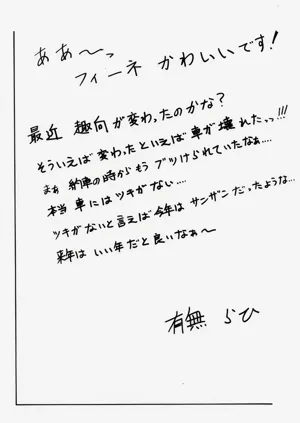 あぁ〜っ
フィーネ かわいいです!
最近 趣向が変わったのかな?
そういえば変わったといえば車が壊れたっっ!!!
まぁ 納車の時からもうブツけられていたなぁ....
本当 車にはツキがない....
ツキがないと言えば今年はサンザンだったような...
来年は いい年だと良いなぁ〜
有無 らひ